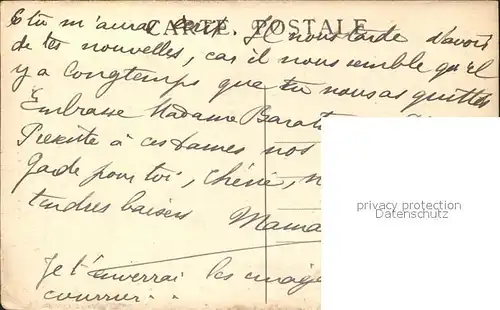 CARTE POSTALE
et tu m'auras écrit. Il nous tarde d'avoir
de tes nouvelles, car il nous semble qu'il
y a longtemps que tu nous as quittés
Embrasse Madame Barat
Présente à ces dames nos
Garde pour toi, chérie, n
tendres baisers Mama
privacy protection
Datenschutz
Je t'enverrai les images
courrier..